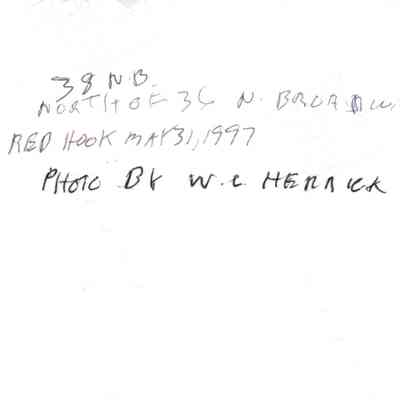 38 N.B.
NORTH OF 36 N. BROADW
RED HOOK MAY 31, 1997
PHOTO BY W. C. HERRICK